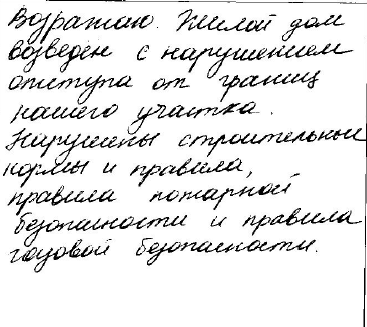 Возражаю. Жилой дом
возведен с нарушением
отступа от границ
нашего участка.
Нарушены строительные
нормы и правила,
правила пожарной
безопасности и правила
газовой безопасности.